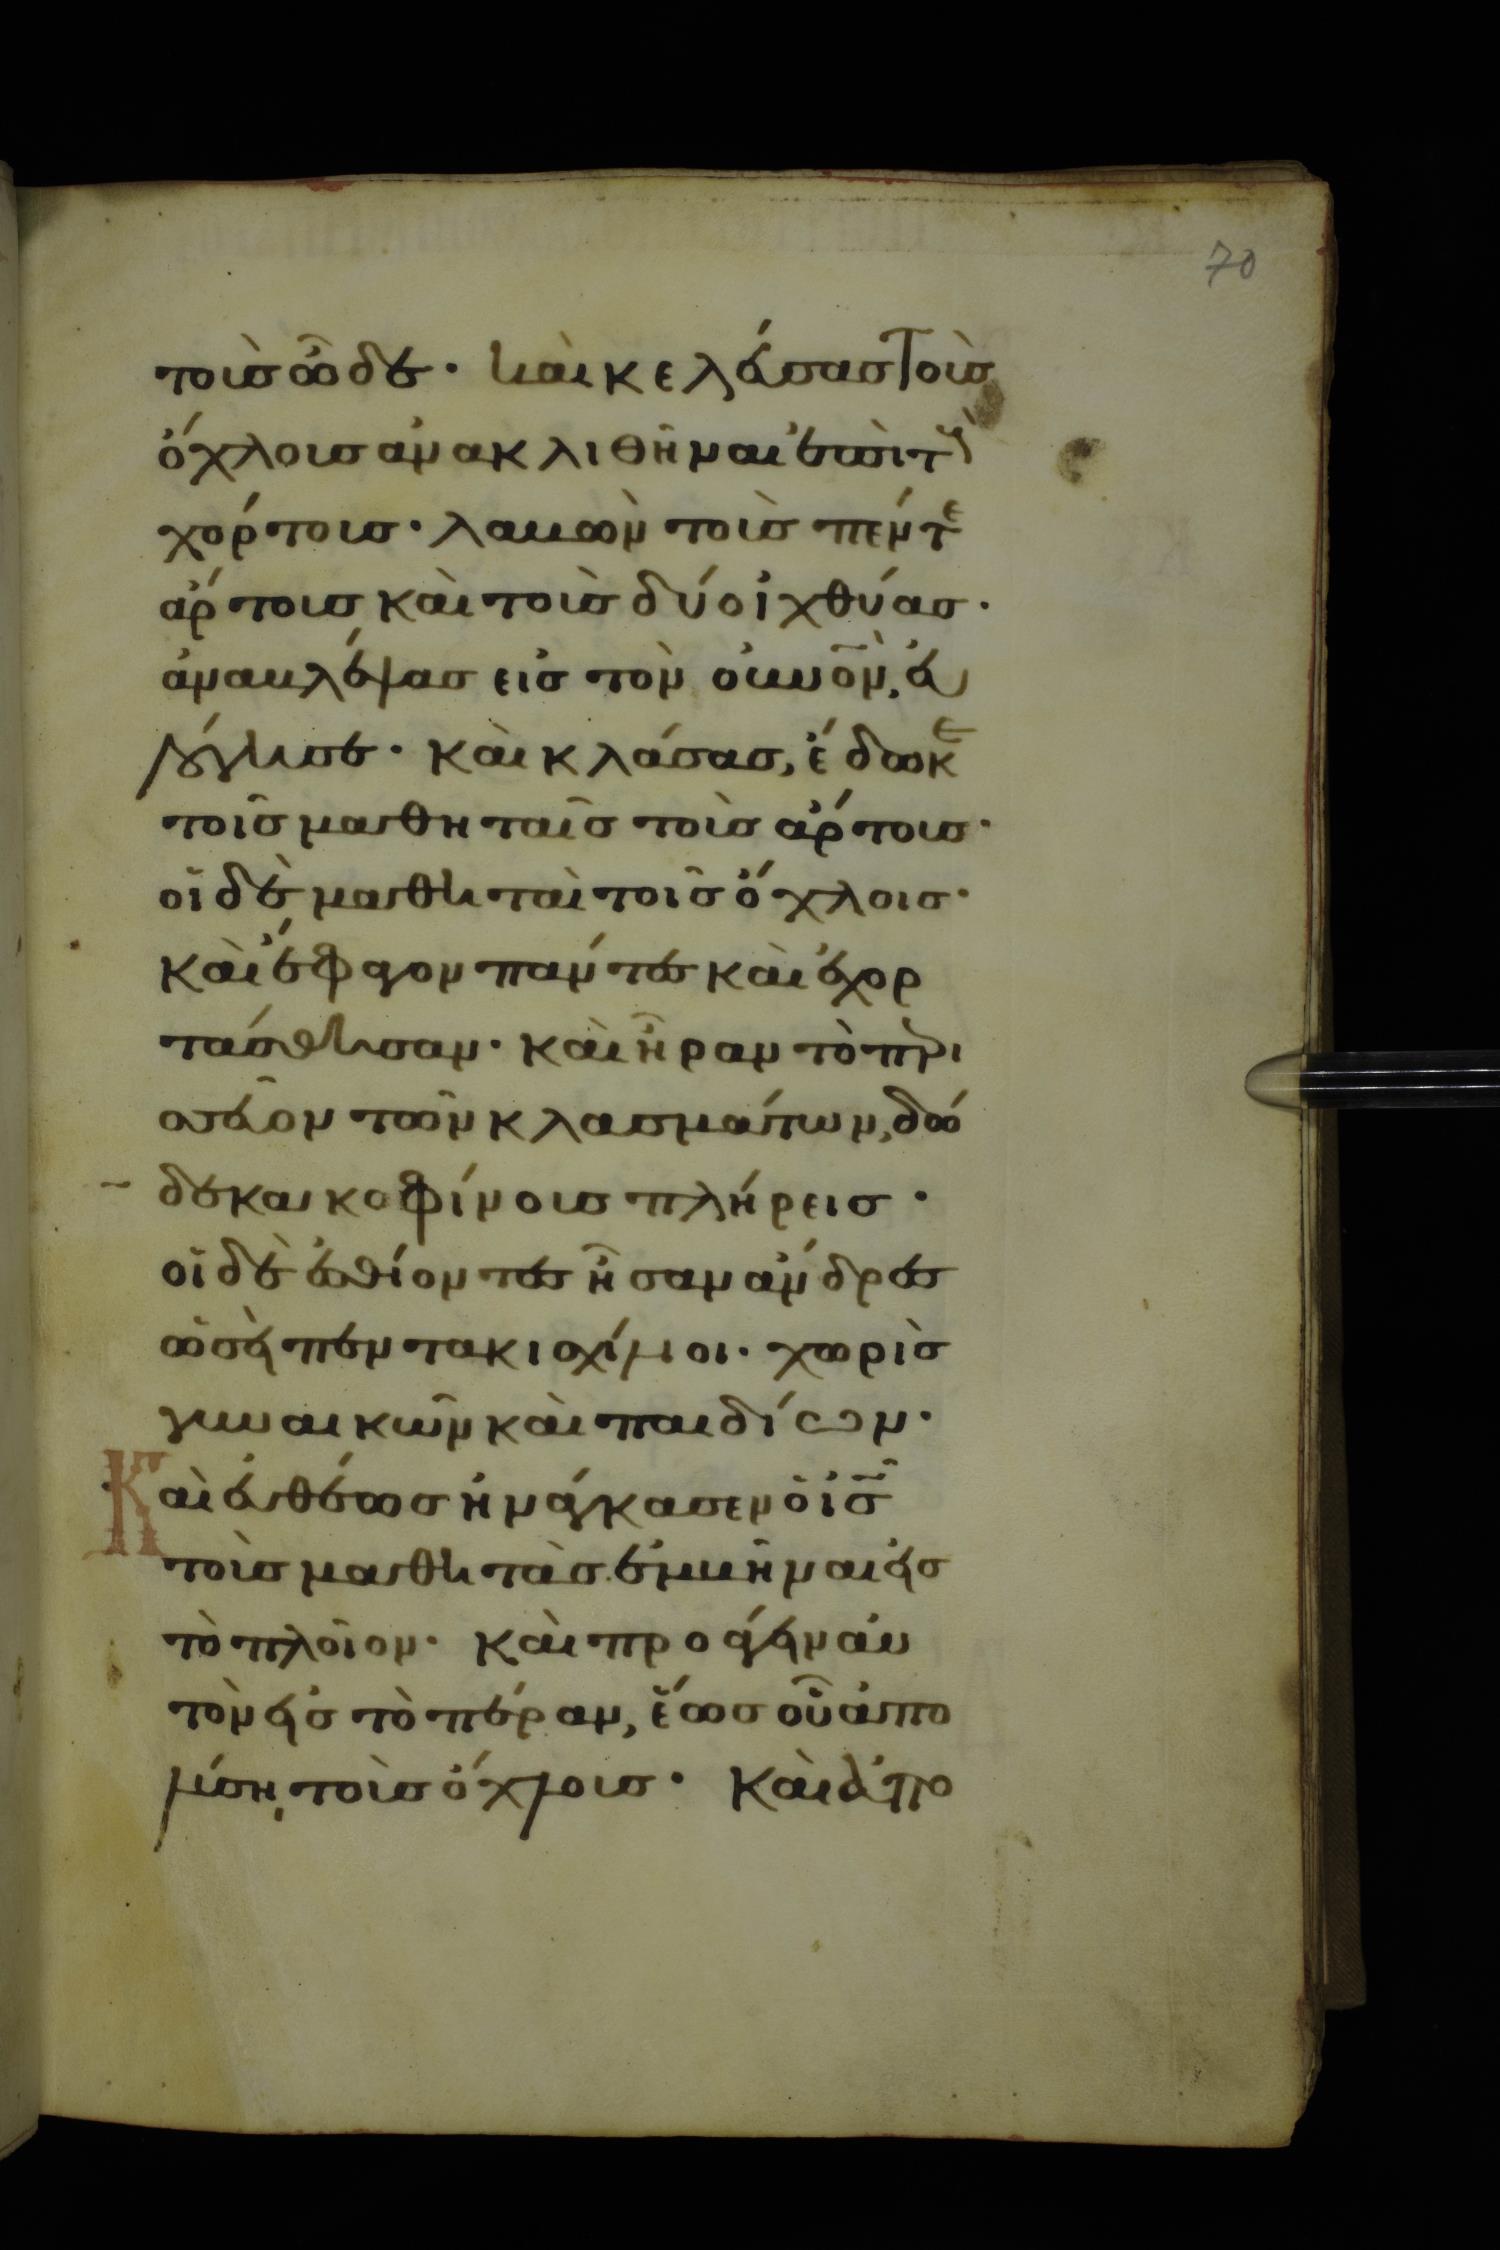 70
τοὺς ὧδε· καὶ κελεύσας τοὺς
ὄχλους ἀνακλιθῆναι ἐπὶ τοὺς
χόρτους· λαβὼν τοὺς πέντε
ἄρτους καὶ τοὺς δύο ἰχθύας·
ἀναβλέψας εἰς τὸν οὐνον, εὐ
λόγησε· καὶ κλάσας, ἔδωκε
τοῖς μαθηταῖς τοὺς ἄρτους·
οἱ δὲ μαθηταὶ τοῖς ὄχλοις·
καὶ ἔφαγον πάντες καὶ ἐχορ
τάσθησαν· καὶ ἦραν τὸ περι
σσεῦον τῶν κλασμάτων, δώ
δεκα κοφίνους πλήρεις·
οἱ δὲ ἐσθίοντες ἦσαν ἄνδρες
ὡσεὶ πεντακισχίλιοι· χωρὶς
γυναικῶν καὶ παιδίων·
Καὶ εὐθέως ἠνάγκασεν ὁ ις
τοὺς μαθητὰς ἐμβῆναι εἰς
τὸ πλοῖον· καὶ προάγειν αὐ
τὸν εἰς τὸ πέραν, ἕως οὗ ἀπο
λύσῃ τοὺς ὄχλους· Καὶ ἀπο